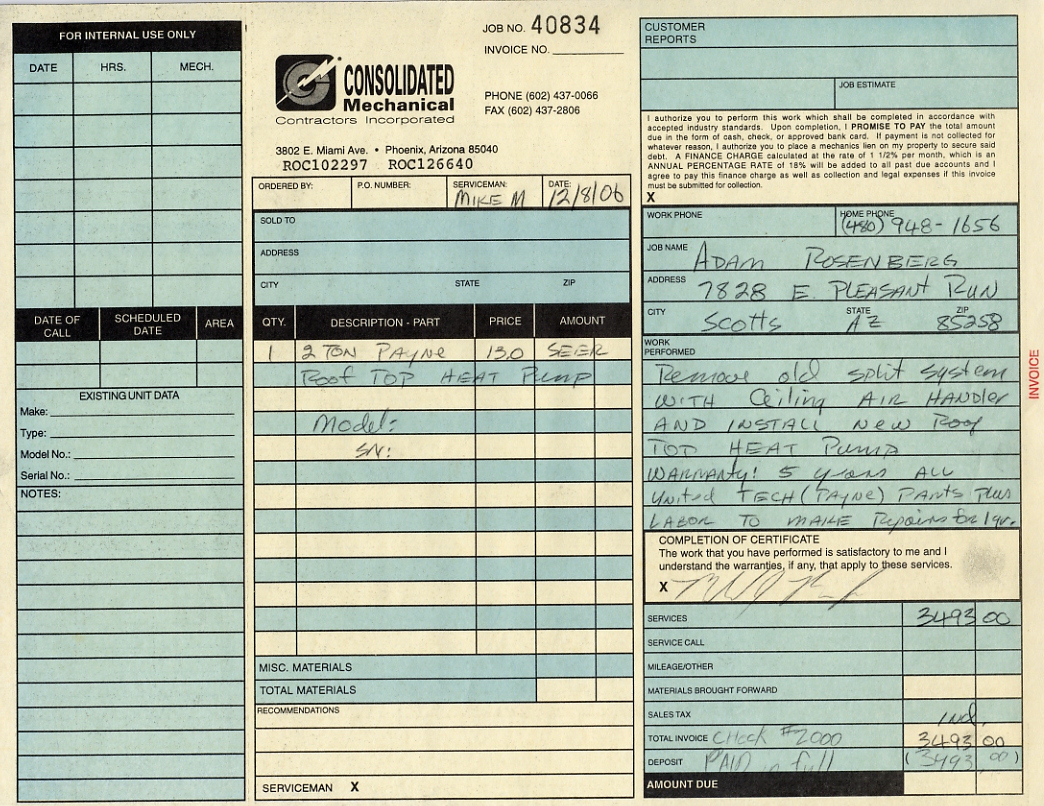 FOR INTERNAL USE ONLY
DATE HRS. MECH.
DATE OF CALL SCHEDULED DATE AREA
EXISTING UNIT DATA
Make:
Type:
Model No.:
Serial No.:
NOTES:
CONSOLIDATED
Mechanical
Contractors Incorporated
JOB NO. 40834
INVOICE NO.
PHONE (602) 437-0066
FAX (602) 437-2806
3802 E. Miami Ave. • Phoenix, Arizona 85040
ROC102297 ROC126640
ORDERED BY: P.O. NUMBER: SERVICEMAN: MIKE M DATE: 12/8/06
SOLD TO
ADDRESS
CITY STATE ZIP
QTY. DESCRIPTION - PART PRICE AMOUNT
1 2 TON PAYNE 13.0 SEER
Roof TOP HEAT Pump
Model:
SN:
MISC. MATERIALS
TOTAL MATERIALS
RECOMMENDATIONS
SERVICEMAN X
CUSTOMER
REPORTS
JOB ESTIMATE
I authorize you to perform this work which shall be completed in accordance with
accepted industry standards. Upon completion, I PROMISE TO PAY the total amount
due in the form of cash, check, or approved bank card. If payment is not collected for
whatever reason, I authorize you to place a mechanics lien on my property to secure said
debt. A FINANCE CHARGE calculated at the rate of 1 1/2% per month, which is an
ANNUAL PERCENTAGE RATE of 18% will be added to all past due accounts and I
agree to pay this finance charge as well as collection and legal expenses if this invoice
must be submitted for collection.
X
WORK PHONE HOME PHONE (480) 948-1656
JOB NAME ADAM ROSENBERG
ADDRESS 7828 E. PLEASANT RUN
CITY Scotts STATE AZ ZIP 85258
WORK
PERFORMED
Remove old split system
WITH Ceiling AIR HANDler
AND INSTALL NEW Roof
TOP HEAT Pump
WARRANTY: 5 years ALL
United TECH (PAYNE) PARTS Plus
LABOR TO MAKE Repairs for 1 yr.
COMPLETION OF CERTIFICATE
The work that you have performed is satisfactory to me and I
understand the warranties, if any, that apply to these services.
X
SERVICES 3493 00
SERVICE CALL
MILEAGE/OTHER
MATERIALS BROUGHT FORWARD
SALES TAX incl.
TOTAL INVOICE CHECK #2000 3493 00
DEPOSIT PAID in full (3493 00)
AMOUNT DUE
INVOICE